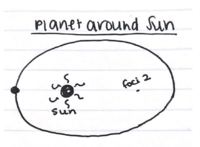 planet around Sun
foci 2
sun